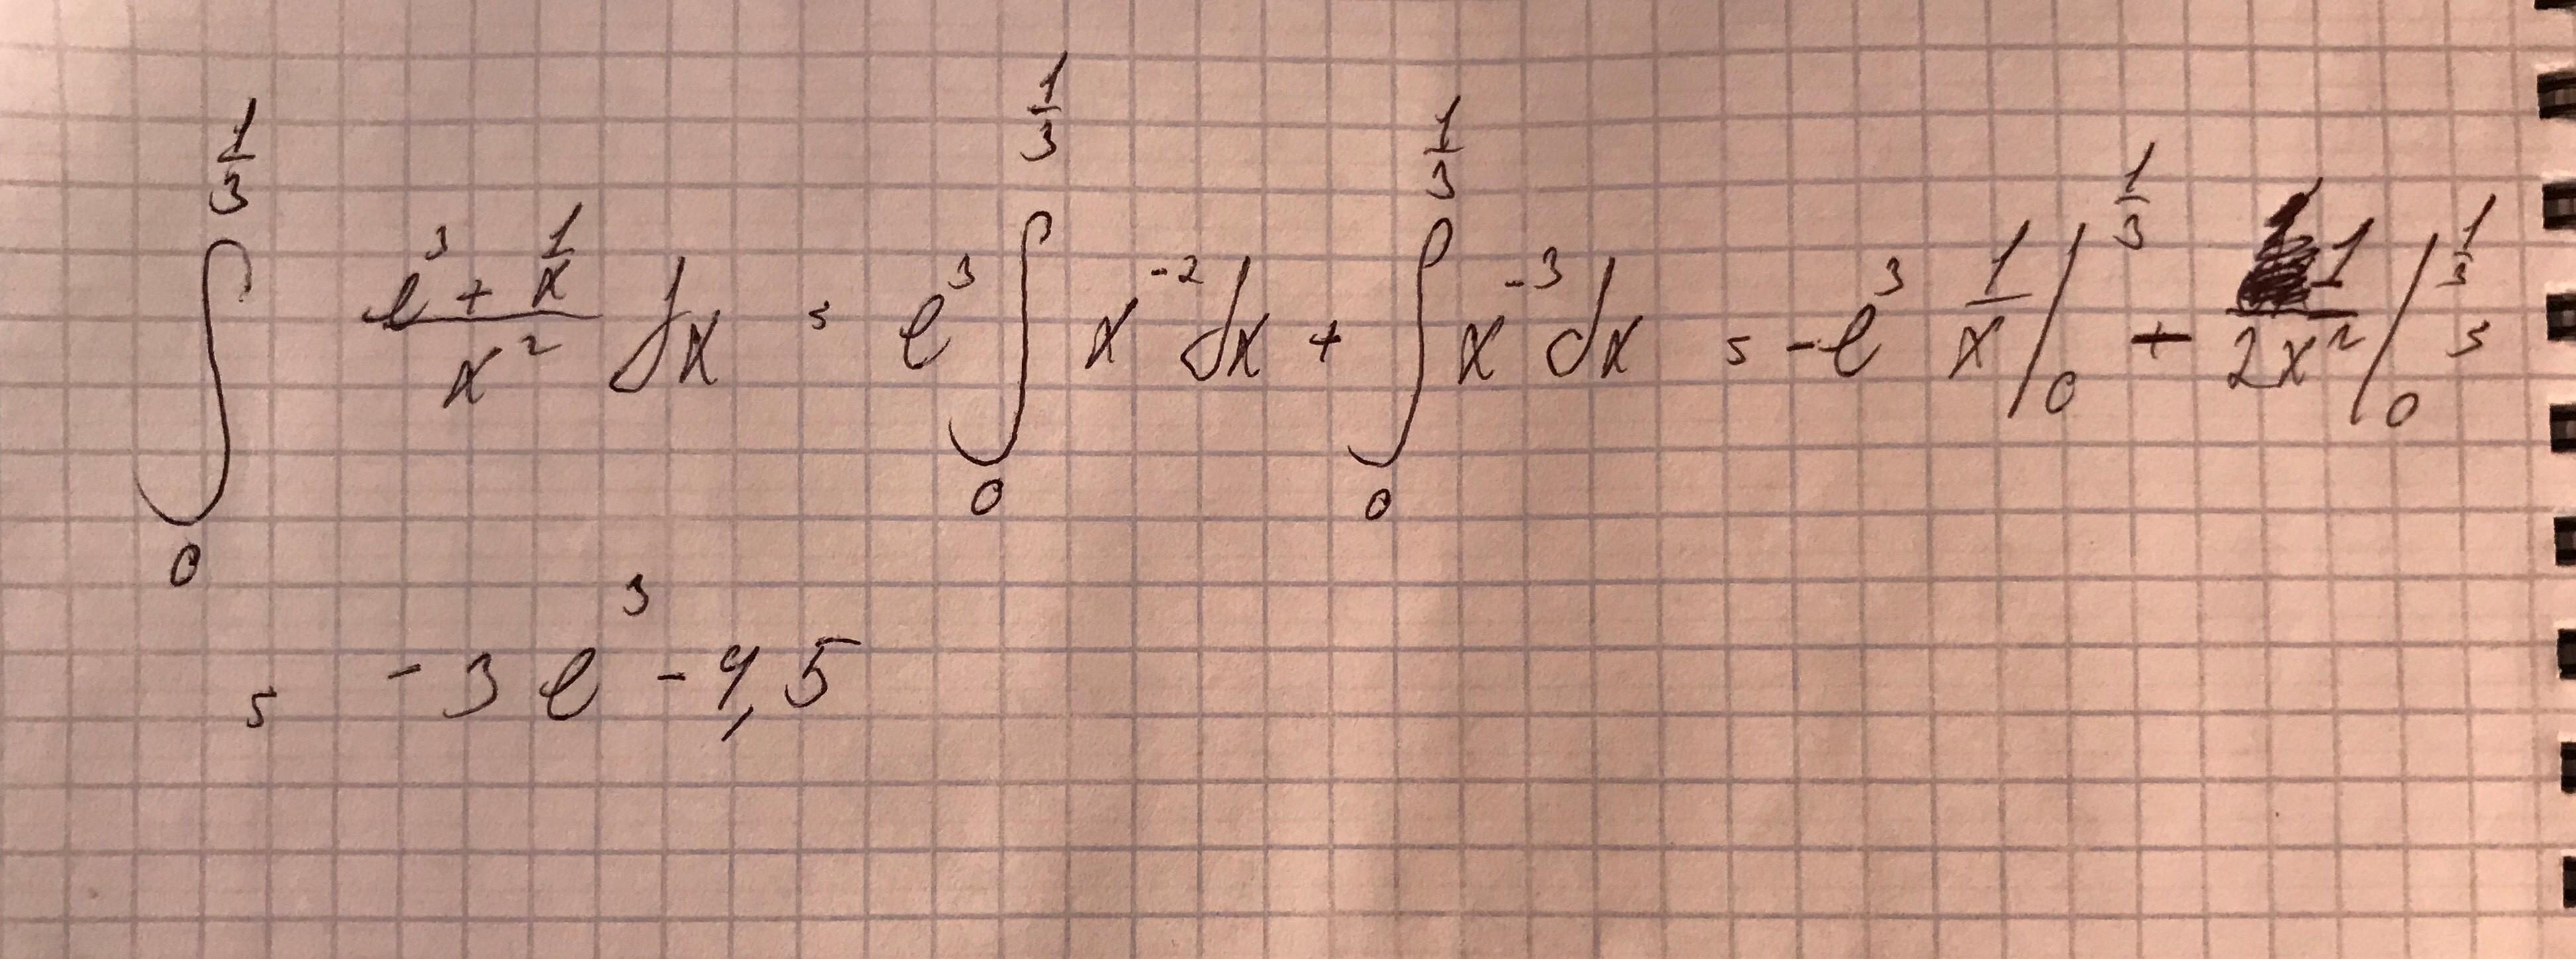 ∫₀^{1/3} (e³ + 1/x)/x² dx = e³ ∫₀^{1/3} x⁻² dx + ∫₀^{1/3} x⁻³ dx = -e³ 1/x |₀^{1/3} + -1/(2x²) |₀^{1/3} =
= -3e³ - 4,5